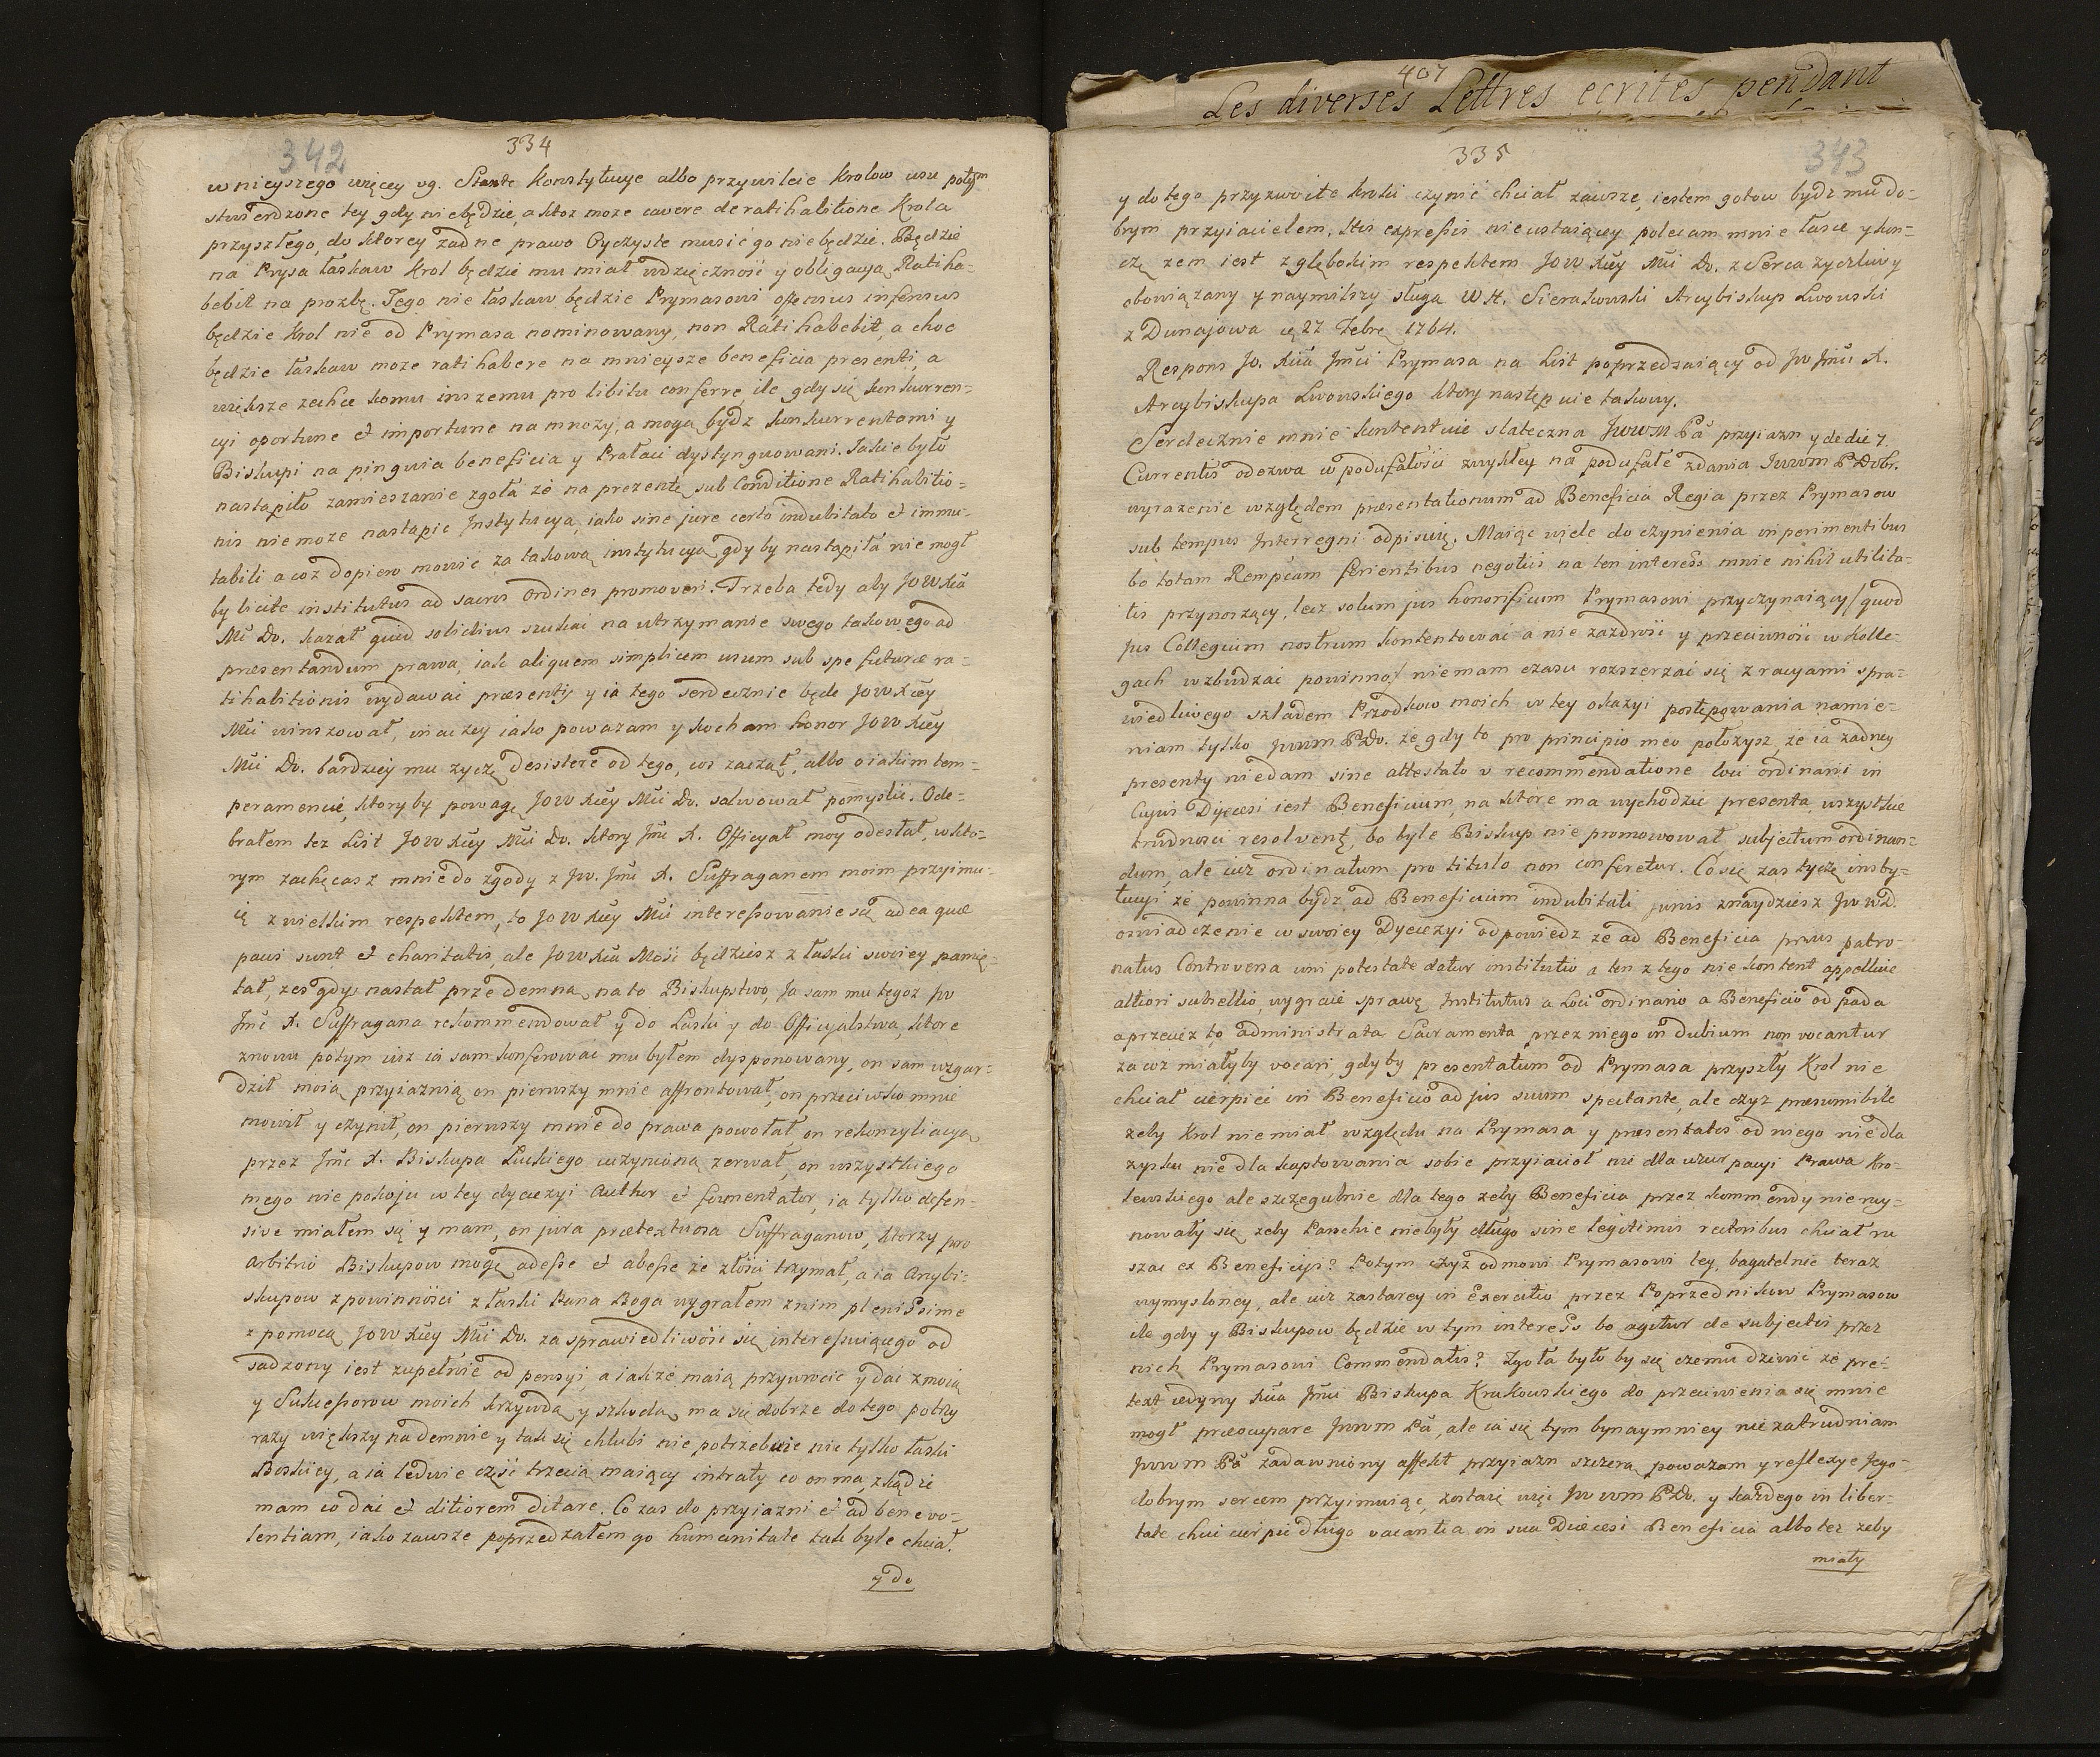 342
334
wnieyszego więcey vg. Stante Konstytucye albo przywileie Krolow usu potym
stwierdzone tey gdy niebędzie, a ktoz moze cavere de ratihabitione Krola
przyszłego, do ktorey zadne prawo Oyczyste musić go niebędzie. Będzie
na Prysa łaskaw Krol będzie mu miał wdzięczność y obligacyą, Ratiha-
bebit na prozbę. Tego nie łaskaw będzie Prymasowi offensus infensus
będzie Krol nie od Prymasa nominowany, non Ratihabebit, a choc
będzie łaskaw moze ratihabere na mnieysze beneficia presenti, a
większe zechce komu inszemu pro libitu conferre, ile gdy się konkurren-
cyi oportune et importune namnozy, a mogą bydz konkurrentami y
Biskupi na pinguia beneficia y Prałaci dystyngwowani. Jakie było
nastąpiło zamieszanie zgoła ze na prezentę sub Conditione Ratihabitio-
nis niemoze nastąpic Instytucya, iako sine jure certo indubitato et immu-
tabili a coz dopiero mowić za takową instytucyą gdyby nastąpiła nie mogł
by licite institutus ad sacros Ordines promoveri. Trzeba tedy aby JOWXća
Mć Do. kazał quid solidius szukac na utrzymanie swego takowego ad
præsentandum prawa, iak aliquem simplicem usum sub spe futuræ ra-
tihabitionis wydawać præsenty y ia tego serdecznie będę JOWXcey
Mći winszował, inaczey iako powazam y kocham honor JOWXcey
Mći Do. bardziey mu zyczę desistere od tego, co zaczął, albo o iakim tem-
peramencie, ktoryby powagę JOWXcey Mći Do. salwował pomyslić. Ode-
brałem tez List JOWXcey Mći Do. ktory Jmć X. Officyał moy odesłał, w kto-
rym zachęcasz mnie do zgody z Jw. Jmć X. Suffraganem moim przyimu-
ię z wielkim respektem, to JOWXcey Mći interessowanie się ad ea quæ
pacis sunt et charitatis, ale JOWXća Mość będziesz z łaski swoiey pamię-
tał, zes gdy nastał przedemną na to Biskupstwo, Ja sam mu tegoz Jw
Jmć X. Suffragana rekommendował y do Łaski y do Officyalstwa, ktore
znowu potym iuz ia sam konferować mu byłem dysponowany, on sam wzgar-
dził moią przyiaznią on pierwszy mnie affrontował, on przeciwko mnie
mowił y czynił, on pierwszy mnie do prawa powołał, on rekoncyliacyą
przez Jmć X. Biskupa Łuckiego uczynioną zerwał, on wszystkiego
mego nie pokoju w tey dyecezyi Author et fomentator, ia tylko defen-
sive miałem się y mam, on jura prætextuosa Suffraganow, ktorzy pro
arbitrio Biskupow mogą adesse et abesse ze złości trzymał, a ia Arcybi-
skupow z powinności z łaski Pana Boga wygrałem z nim plenissime
z pomocą JOWXcey Mći Do. za sprawiedliwość się interessuiącego od
sadzony iest zupełnie od pensyi, a iakze maią przywrocic y dac z moią
y Sukcessorow moich krzywdą y szkodą, ma się dobrze do tego potrzy
razy większy nademnie y tak się chlubi nie potrzebuie nic tylko łaski
Boskiey, a ia ledwie część trzecią maiący intraty co on ma, zkądze
mam co dac et ditiorem ditare. Co zas do przyiazni et ad benevo-
lentiam, iako zawsze poprzedzałem go humanitate tak byle chciał.
y do
407
Les diverses Lettres ecrites pendant
335
343
y do tego przyzwoite kroki czynić chciał zawsze, iestem gotow bydz mu do-
brym przyiacielem. His expressis nieustaiącey polecam mnie łasce y kon-
czę zem iest z głębokim respektem JOWXcey Mći Do. z Serca zyczliwy
obowiązany y naymilszy sługa W H. Sierakowski Arcybiskup Lwowski
z Dunajowa d 27 Febr. 1764.
Respons Jo. Xcia Jmći Prymasa na List poprzedzaiący od Jw Jmć X.
Arcybiskupa Lwowskiego ktory następuie takowy.
Serdecznie mnie kontentuie stateczna Jwwm Pa przyiazn y de die 7.
Currentis odezwa w poufałości zwykłey na poufałe zdania Jwwm P Dobr.
wyrazenie względem præsentationum ad Beneficia Regia przez Prymasow
sub tempus Interregni odpisuię. Maiąc wiele do czynienia in perimentibus
bo totam Rempcam ferientibus negotiis na ten interess mnie nihil utilita-
tis przynoszący, lecz solum jus honorificum Prymasowi przyczyniaiący / quod
jus Collegium nostrum kontentować a nie zazdrość y przeciwność w Kolle-
gach wzbudzać powinno / niemam czasu rozszerzać się z racyami spra-
wiedliwego szladem Przodkow moich w tey okazyi postępowania namie-
niam tylko Jwwm P Do. ze gdy to pro principio meo połozysz, ze ia zadney
presenty niedam sine attestato v recommendatione loci ordinarii in
Cujus Dyœcesi iest Beneficium, na ktore ma wychodzic presenta, wszystkie
trudnosci resolventę, bo byle Biskup nie promowował subjectum ordinan-
dum, ale iuz ordinatum pro titulo non conferetur. Co się zas tycze insty-
tucyi ze powinna bydz ad Beneficium indubitati juris znaydziesz Jwwd.
oswiadczenie w swoiey Dyecezyi odpowiedz ze ad Beneficia jurus patro-
natus Controversa uni potestate datur institutio a ten z tego nie kontent appelluie
altiori subsellio, wygraie sprawę, Institutus a Loci ordinario a Beneficio odpada
a przeciez to administrata Sacramenta przez niego in dubium non vocantur
za coz miałyby vocari, gdyby presentatum od Prymasa przyszły Krol nie
chciał cierpieć in Beneficio ad jus suum spectante, ale czyz præsumibile
zeby Krol niemiał względu na Prymasa y præsentatos od niego niedla
zysku nie dla kaptowania sobie przyiacioł nie dla uzurpacyi Prawa Kro-
lewskiego ale szczegulnie dla tego zeby Beneficia przez kommendy nieruy-
nowały się, zeby Parochie niebyły długo sine legitimis rectoribus chciał ru
szac ex Beneficijs? Potym czyz odmowi Prymasowi tey, bagatelnie teraz
wymysloney, ale iuz zastarey in Exercitio przez Poprzednikow Prymasow
ile gdy y Biskupow będzie w tym interess bo agitur de subjectis przez
nich Prymasowi Commendatis? Zgoła było by się czemu dziwić ze pre-
text iedyny Xcia Jmći Biskupa Krakowskiego do przeciwienia się mnie
mogł præocupare Jwwm Pa, ale ia się tym bynaymniey nie zatrudniam
Jwwm Pa zadawniony affekt przyiazn szczerą powazam y reflexye Jego
dobrym sercem przyimuiąc, zostaię więc Jwwm P Do. y kazdego in liber-
tate chce cierpieć długo vacantia in sua Diœcesi Beneficia albo tez zeby
miały